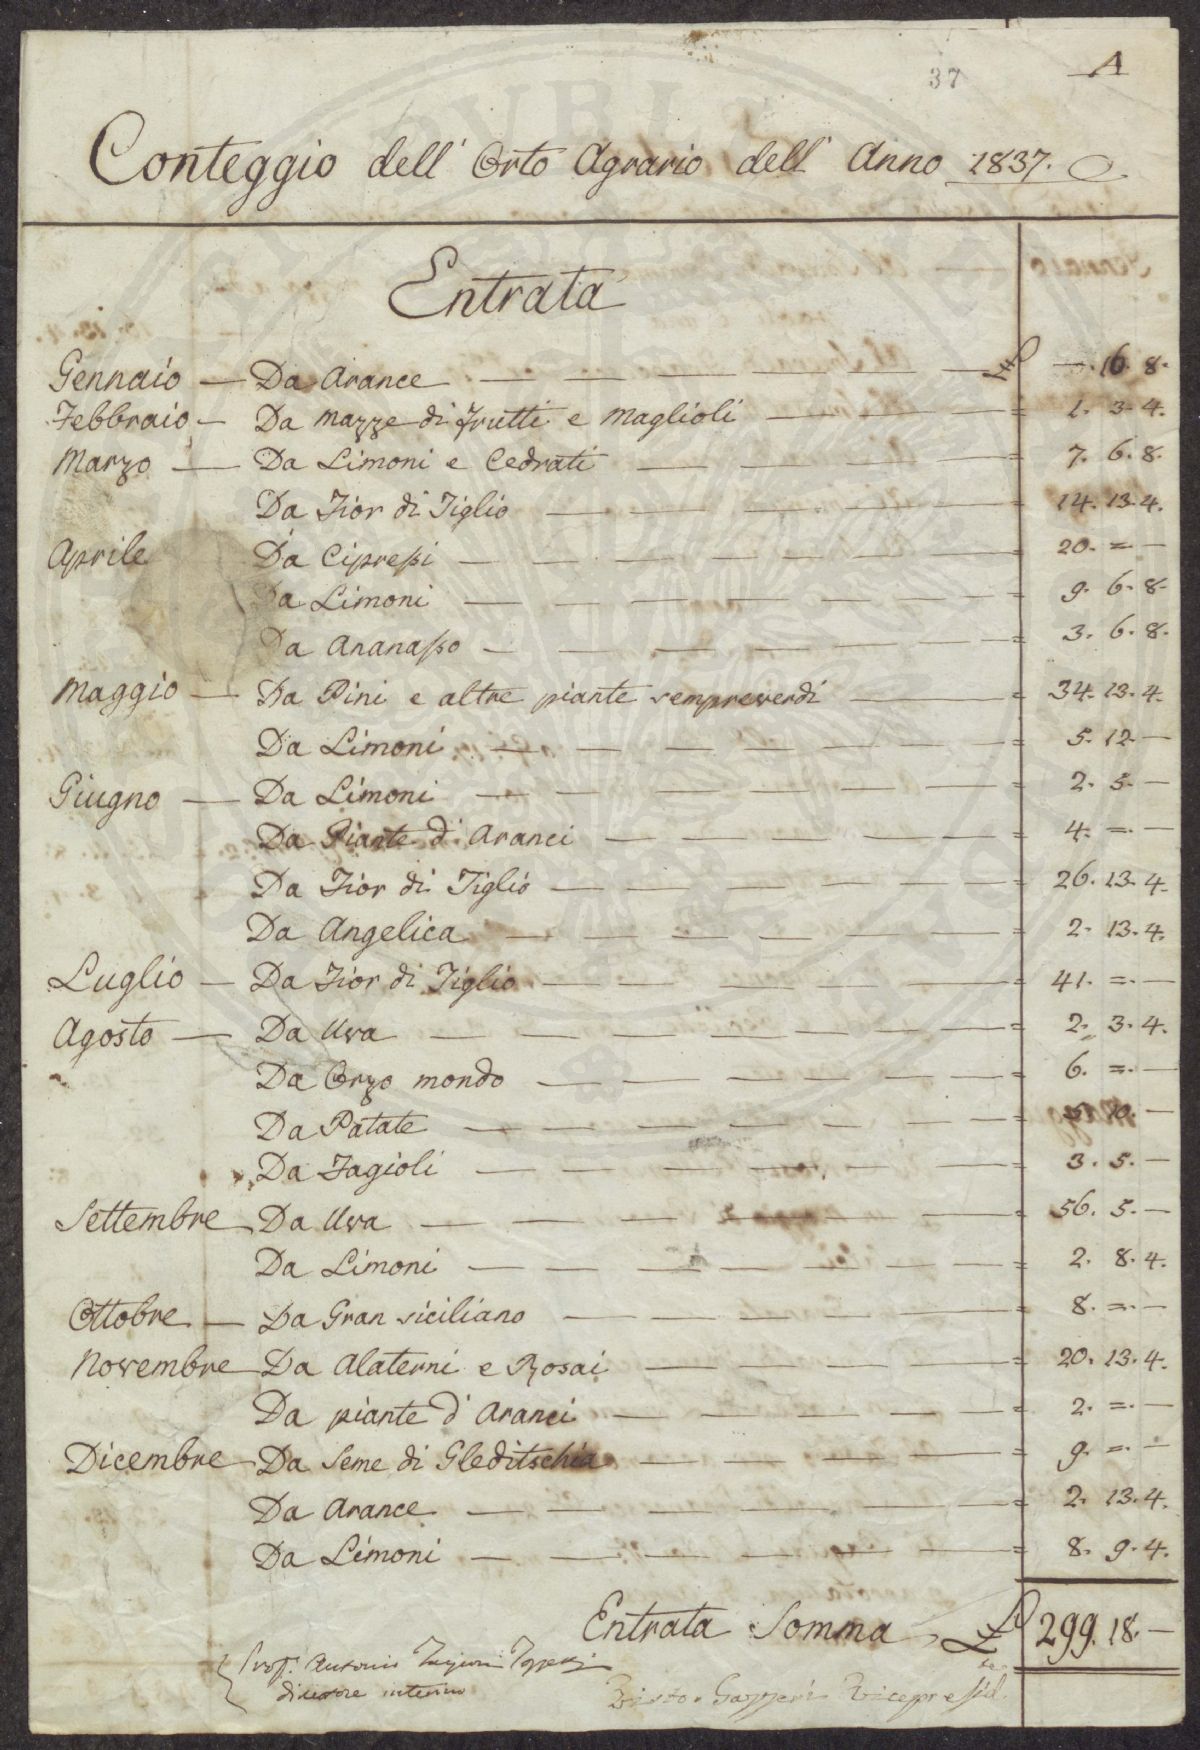 37
A
Conteggio dell' Orto Agrario dell' Anno 1837.
Entrata
Gennaio — Da Arance — £ —. 16. 8.
Febbraio — Da Mazze di frutti e Maglioli — = 1. 3. 4.
Marzo — Da Limoni e Cedrati — = 7. 6. 8.
Da Fior di Tiglio — = 14. 13. 4.
Aprile Da Cipressi — = 20. = —
Da Limoni — = 9. 6. 8.
Da Ananasso — = 3. 6. 8.
Maggio — Da Pini e altre piante sempreverdi — = 34. 13. 4.
Da Limoni — = 5. 12. —
Giugno — Da Limoni — = 2. 5. —
Da Piante d'Aranci — = 4. =. —
Da Fior di Tiglio — = 26. 13. 4.
Da Angelica — = 2. 13. 4.
Luglio — Da Fior di Tiglio — = 41. =. —
Agosto — Da Uva — = 2. 3. 4.
Da Orzo mondo — = 6. =. —
Da Patate — = 5. 10. —
Da Fagioli — = 3. 5. —
Settembre Da Uva — = 56. 5. —
Da Limoni — = 2. 8. 4.
Ottobre — Da Gran siciliano — = 8. =. —
Novembre Da Alaterni e Rosai — = 20. 13. 4.
Da piante d'Aranci — = 2. =. —
Dicembre Da Seme di Gleditschia — = 9. =. —
Da Arance — = 2. 13. 4.
Da Limoni — = 8. 9. 4.
Entrata Somma £ 299. 18. —
Prof. Antonio Targioni Tozzetti
direttore interino
Visto. Gazzeri Vicepresid.te